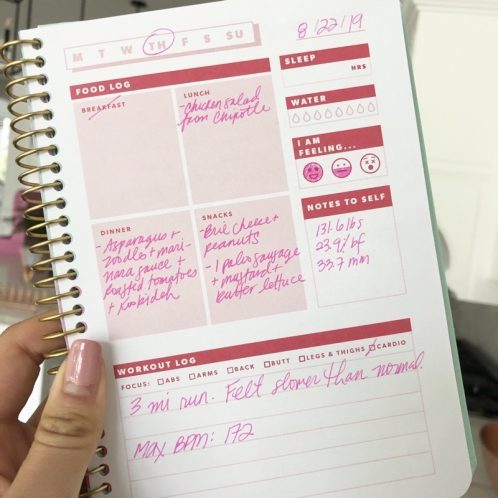 8/22/19
M T W TH F S SU
FOOD LOG
BREAKFAST
LUNCH
-Chicken salad
from Chipotle
DINNER
-Asparagus +
zoodles + mari-
nara sauce +
roasted tomatoes
+ koobideh
SNACKS
-Brie cheese +
peanuts
-1 paleo sausage
+ mustard +
butter lettuce
SLEEP
HRS
WATER
I AM
FEELING...
NOTES TO SELF
131.6 lbs
23.9% bf
33.7 mm
WORKOUT LOG
FOCUS: ABS ARMS BACK BUTT LEGS & THIGHS CARDIO
3 mi run. Felt slower than normal.
Max BPM: 172